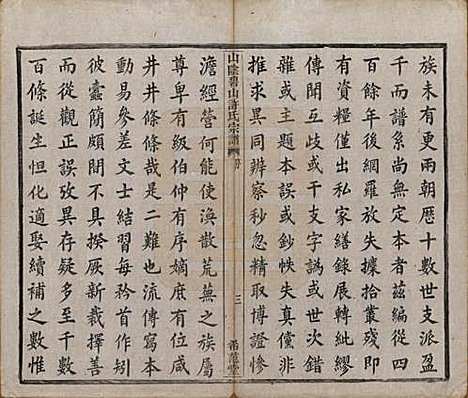 族未有更兩朝歷十數世支派盈
千而譜系尚無定本者茲編從四
百餘年後網羅放失攗拾叢殘即
有資糧僅出私家繕錄展轉紕繆
傳聞互歧或干支字譌或世次錯
雜或主題本誤或鈔帙失真儻非
推求異同辦察秒忽精取博證慘
山陰碧山許氏宗譜
序
三
希范堂
澹經營何能使渙散荒蕪之族屬
尊卑有級伯仲有序嫡庶有位咸
井井條條之二難也流傳寫本
動易參差文士結習每矜首作矧
彼蠡簡頗不具揆厥新裁擇善
而從觀正誤異存疑多至六七
百條誕生歿化適娶續補之數惟